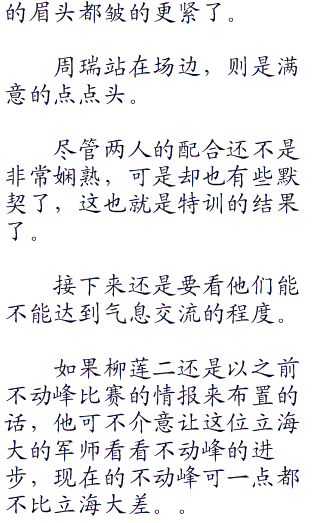 的眉头都皱的更紧了。
周瑞站在场边，则是满
意的点点头。
尽管两人的配合还不是
非常娴熟，可是却也有些默
契了，这也就是特训的结果
了。
接下来还是要看他们能
不能达到气息交流的程度。
如果柳莲二还是以之前
不动峰比赛的情报来布置的
话，他可不介意让这位立海
大的军师看看不动峰的进
步，现在的不动峰可一点都
不比立海大差。。